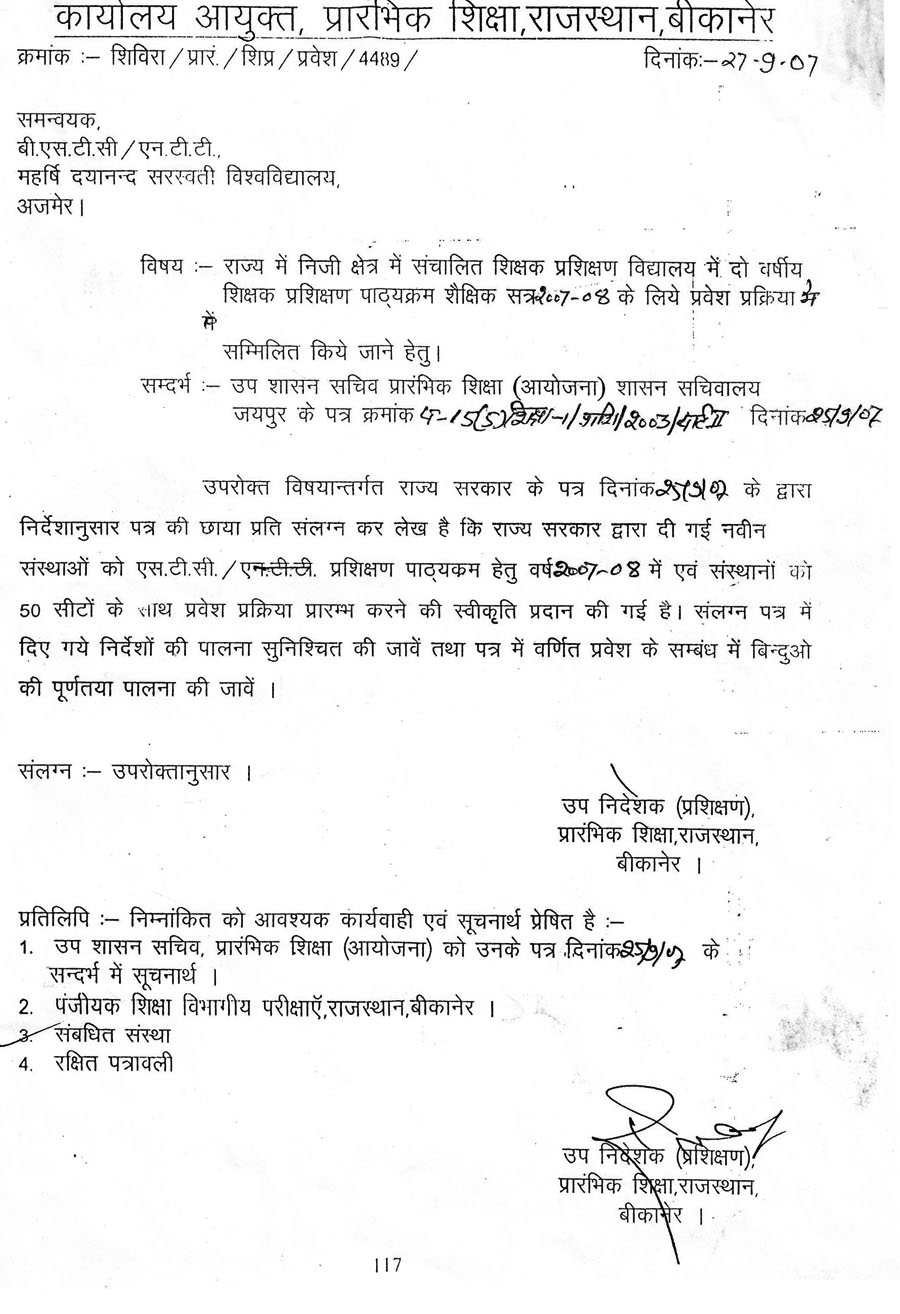 कार्यालय आयुक्त, प्रारंभिक शिक्षा,राजस्थान,बीकानेर
क्रमांक :– शिविरा/प्रारं./शिप्र/प्रवेश/4489/ दिनांकः–27-9-07
समन्वयक,
बी.एस.टी.सी/एन.टी.टी.,
महर्षि दयानन्द सरस्वती विश्वविद्यालय,
अजमेर।
विषय :– राज्य में निजी क्षेत्र में संचालित शिक्षक प्रशिक्षण विद्यालय में दो वर्षीय
शिक्षक प्रशिक्षण पाठ्यक्रम शैक्षिक सत्र 2007-08 के लिये प्रवेश प्रक्रिया में
में
सम्मिलित किये जाने हेतु।
सम्दर्भ :– उप शासन सचिव प्रारंभिक शिक्षा (आयोजना) शासन सचिवालय
जयपुर के पत्र क्रमांक 15(5) शिक्षा-1/प्राशि/2003/पार्ट II दिनांक 25/9/07
उपरोक्त विषयान्तर्गत राज्य सरकार के पत्र दिनांक 25/9/07 के द्वारा
निर्देशानुसार पत्र की छाया प्रति संलग्न कर लेख है कि राज्य सरकार द्वारा दी गई नवीन
संस्थाओं को एस.टी.सी./एन.टी.टी. प्रशिक्षण पाठ्यकम हेतु वर्ष 2007-08 में एवं संस्थानों को
50 सीटों के साथ प्रवेश प्रक्रिया प्रारम्भ करने की स्वीकृति प्रदान की गई है। संलग्न पत्र में
दिए गये निर्देशों की पालना सुनिश्चित की जावें तथा पत्र में वर्णित प्रवेश के सम्बंध में बिन्दुओ
की पूर्णतया पालना की जावें ।
संलग्न :– उपरोक्तानुसार ।
उप निदेशक (प्रशिक्षण),
प्रारंभिक शिक्षा,राजस्थान,
बीकानेर ।
प्रतिलिपि :– निम्नांकित को आवश्यक कार्यवाही एवं सूचनार्थ प्रेषित है :–
1. उप शासन सचिव, प्रारंभिक शिक्षा (आयोजना) को उनके पत्र दिनांक 25/9/07 के
सन्दर्भ में सूचनार्थ ।
2. पंजीयक शिक्षा विभागीय परीक्षाऍ,राजस्थान,बीकानेर ।
3. संबधित संस्था
4. रक्षित पत्रावली
उप निदेशक (प्रशिक्षण),
प्रारंभिक शिक्षा,राजस्थान,
बीकानेर ।
117